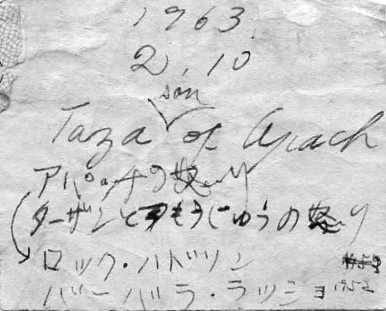 1963.
2.10
Taza son of Apach
アパッチの怒り
ターザンともうじゅうの怒り
ロック・ハドソン
バーバラ・ラッシュ 1952